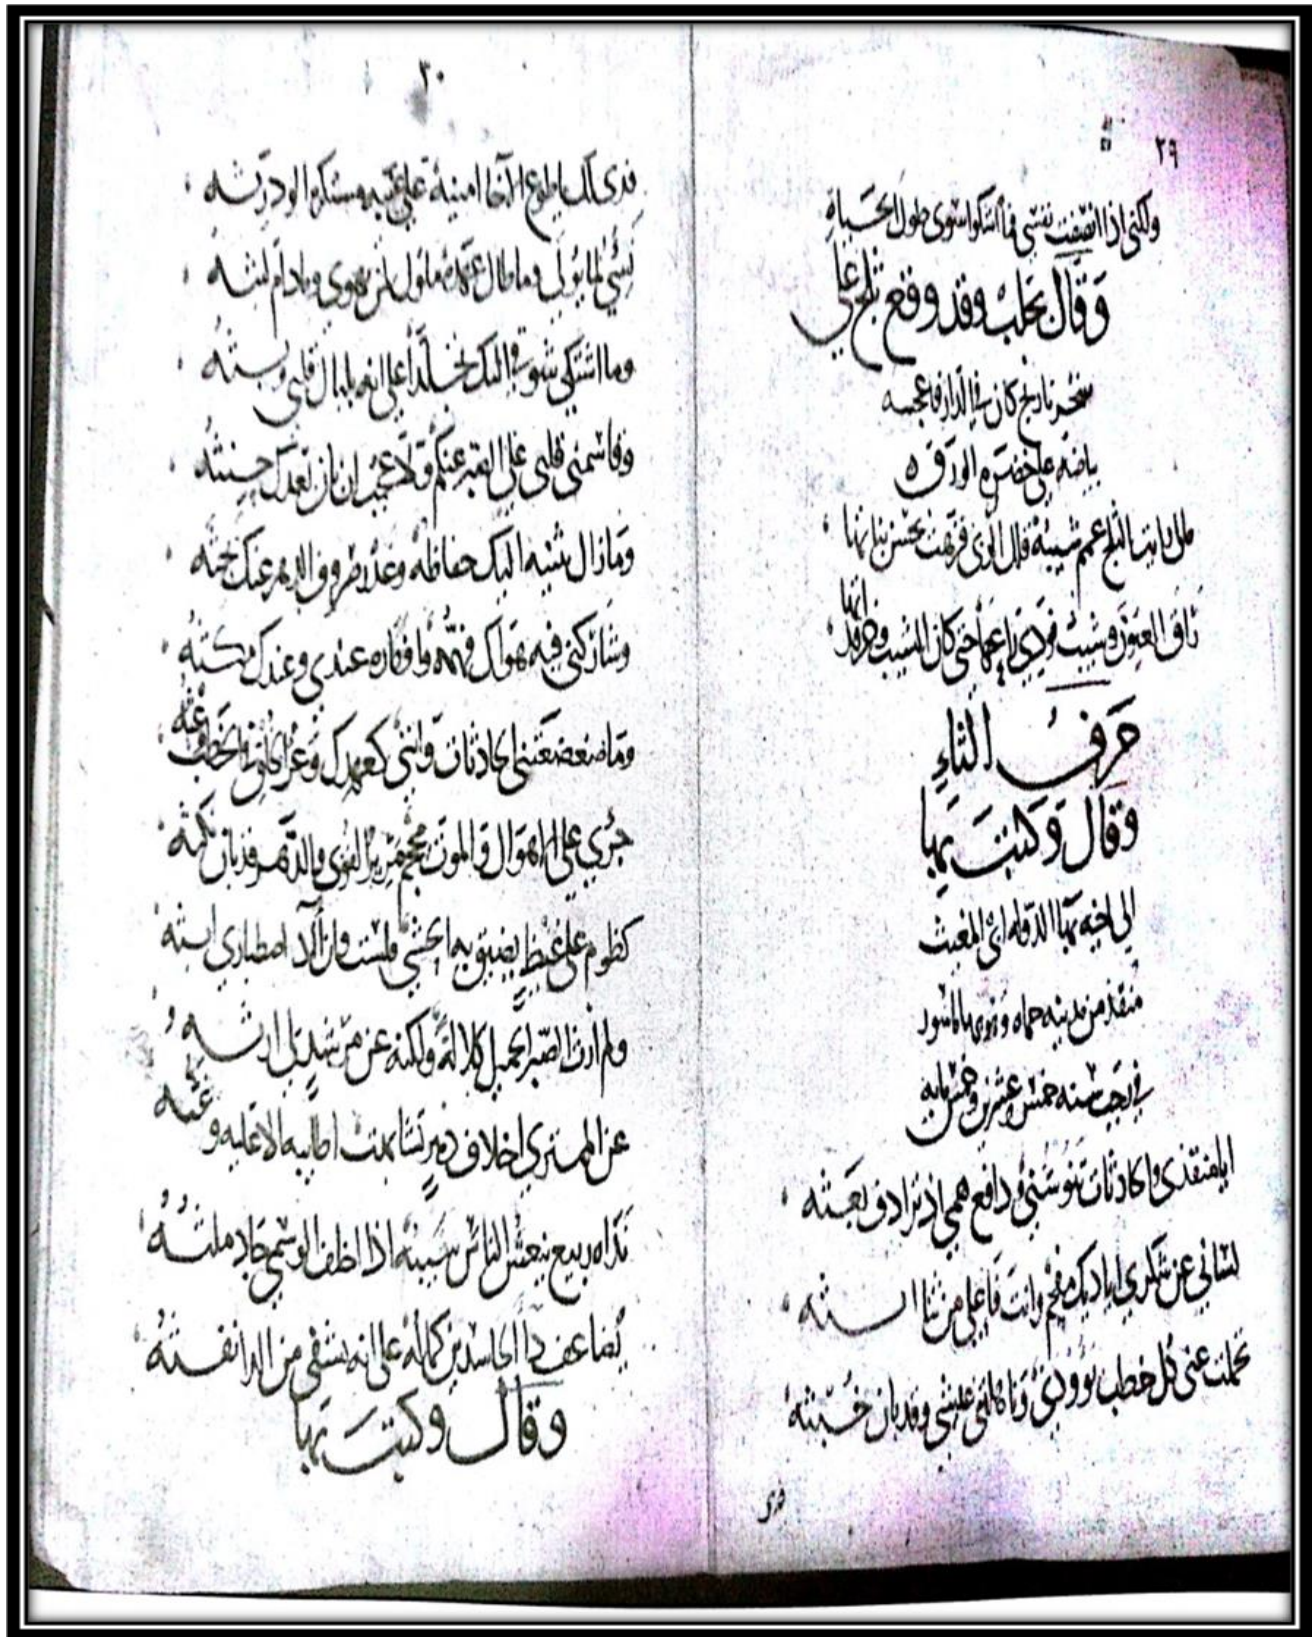 ٢٩
ولكني اذا انصفت نفسي فما اشكوا سوى طول الحياة
وقال بحلب وقد وقع ثلج على
شجر نارنج كان في الدار فاعجبه
بياضه على خضرة الورق ه
عمم شيبه بحسن بنانها
راق العيون وشيب فودي راعها حتى كان المشيب
حرف الثاء
وقال وكتب بها
الى اخيه بهاء الدولة ابي المغيث
منقذ من مدينة حماه
في رجب سنة خمس وعشرين وخمس مايه
ايا منقذي والحادثات تنوشني ودافع همي اذ ترادف بعثه
لساني عن شكري اياديك مفحم وانت فاعلى من ثناء ابثه
تحملت عني كل خطب يؤودني وناكلني عيشي وقد بان خبثه
فدى
٣٠
فدى لك يا طوع الاخا امنية على غيه مستكره الود رثه
نسي لما يولي وما طال عهده ملول لمن يهوى وما دام لبثه
وما اشتكي شوقي اليك تجلدا على انه بلبال قلبي وبثه
وقاسمني قلبي على الصبر عنكم ولا عجب ان بان بعدك حنثه
وما زال تثنيه اليك حفاظه وغدر صروف الدهر عنك تحثه
وشاركني فيه هواك فهمه وافكاره عندي وعندك مكثه
وما ضعضعتني الحادثات وانني كعهدك وعر الخطب
جري على الاهوال والموت محجم مرير القوى والدهر قد بان نكثه
كظوم على غيظ يضيق به الحشى فلست وان آد اصطباري ابثه
ولم ارث الصبر الجميل كلالة ولكنه عن مرشد بل ارثه
عن الممتري اخلاف دهر تشابهت اطايبه الا عليه وغثه
نداه ربيع ينعش الناس سيبه اذا اخلف الوسمي جاد ملثه
يضاعف داء الحاسدين كماله على انه يشفي من الداء نفثه
وقال وكتب بها